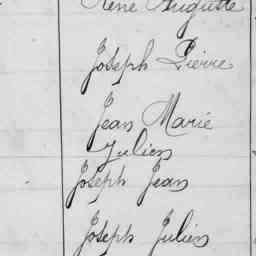 René Auguste
Joseph Pierre
Jean Marie
Julien
Joseph Jean
Joseph Julien